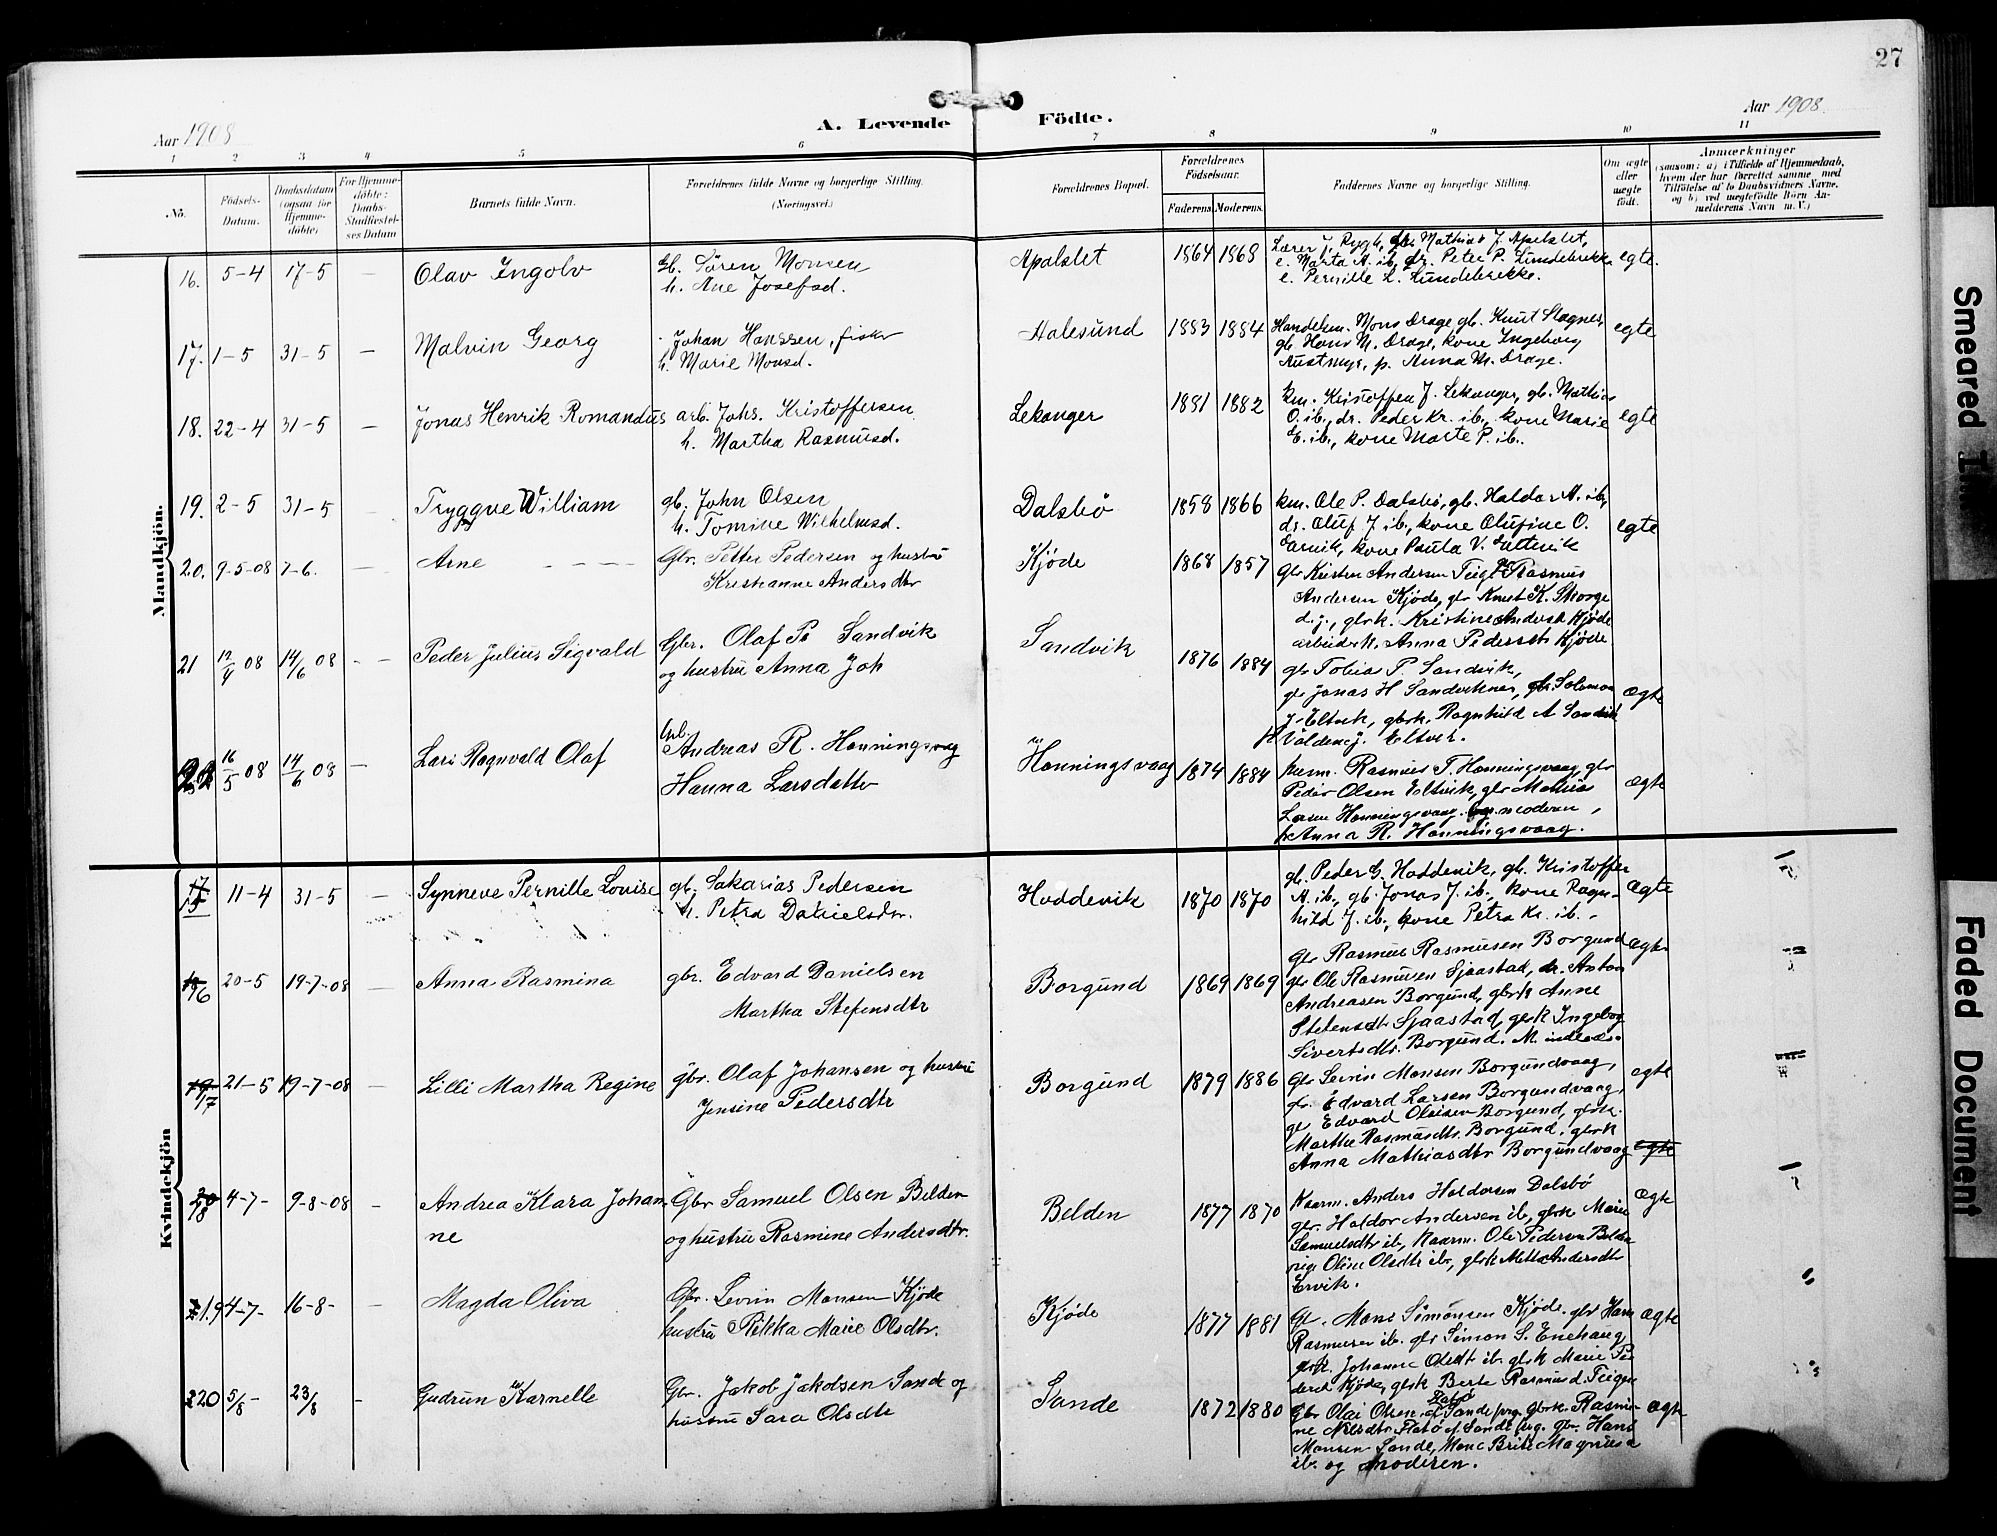 27
Aar 1908
A. Levende Födte.
Aar 1908.
1 2 3 4 5 6 7 8 9 10 11
No.
Födsels-
Datum.
Daabsdatum
(ogsaa for
Hjemme-
döbte)
For Hjemme-
döbte:
Daabs-
Stadfæstel-
ses Datum
Barnets fulde Navn.
Forældrenes fulde Navne og borgerlige Stilling.
(Næringsvei.)
Forældrenes Bopæl.
Forældrenes
Födselsaar.
Faderens. Moderens.
Faddernes Navne og borgerlige Stilling.
Om ægte
eller
uægte
født.
Anmærkninger
(saasom: a) i Tilfælde af Hjemmedaab,
hvem der har forrettet samme med
Tilföielse af to Daabsvidners Navne,
og b) ved uægtefödte Börn An-
melderens Navn m. V.)
Mandkjön.
16. 5-4 17-5 — Olav Ingolv
gb. Søren Monsen
h. Ane Josefsd.
Apalslet 1864 1868
Lærer J. Rygh, gbr. Mathias J. Apalslet,
e. Marta A. ib, dr. Peter P. Lundebrekke
e. Pernille L. Lundebrekke.
egte.
17. 1-5 31-5 — Malvin Georg
Johan Hanssen, fisker
h. Marie Monsd.
Aalesund 1883 1884
Handelsm. Mons Drage gb. Knut Stagnes,
gb Hans M. Drage, kone Ingeborg
Austmyr, p. Anna M. Drage.
egte
18. 22-4 31-5 — Jonas Henrik Romandus
arb. Johs. Kristoffersen
h. Martha Rasmusd.
Lekanger 1881 1882
km. Kristoffen J. Lekanger, gb. Mathias
O. ib., dr. Peder Kr. ib., kone Marie
E. ib., kone Marte P. ib.
egte
19. 2-5 31-5 — Tryggve William
gb. John Olsen
h. Tomine Wilhelmsd.
Dalsbø 1858 1866
km. Ole P. Dalsbø, gb. Haldor A. ib,
dr. Oluf J ib., kone Olufine O.
Ervik, kone Paula V. Eltevik
egte
20. 9-5-08 7-6. — Arne
Gbr. Petter Pedersen og hustru
Kristianne Andersdtr
Kjøde 1868 1857
Gbr Kristen Andersen Teige Rasmus
Andersen Kjøde, gbr Knut K. Skorge
d.y., gbrk. Kristine Andersd Kjöde
arbeidsk. Anna Pedersdtr Kjøde
21 12/4 08 14/6 08 - - Peder Julius Sigvald
Gbr. Olaf P. Sandvik
og hustru Anna Joh
Sandvik 1876 1884
gbr Tobias P. Sandvik,
gbr Jonas H Sandviknes, gbr. Salomon
J. Eltvik, gbrk. Ragnhild A Sandvik
Valdine J. Eltvik.
ægte
22 16/5 08 14/6 08 — Lars Ragnvald Olaf
Gbr.
Andreas R. Honningsvaag
Hanna Larsdatter
Honningsvaag 1874 1884
husm. Rasmus T. Honningsvaag, gbr
Peder Olsen Eltvik, gbr Mathias
Larsen Honningsvaag. moderen,
Anna R. Honningsvaag.
ægte
Kvindekjön
15 11-4 31-5 — Synneve Pernille Lovise
gb. Sakarias Pedersen
h. Petra Danielsdr.
Hoddevik 1870 1870
gb. Peder G. Hoddevik, gb. Kristoffer
A. ib., gb. Jonas J. ib., kone Ragn-
hild J. ib., kone Petra Kr. ib.
ægte
16 20-5 19-7-08 — Anna Rasmina
gbr. Edvard Danielsen
Martha Stefensdtr
Borgund 1869 1869
Gbr Rasmus Rasmusen Borgund
gbr Ole Rasmusen Sjaastad, dr. Anton
Andreasen Borgund, gbrk Anne
Stefensdtr Sjaastad, gbrk Ingeborg
Sivertsdtr. Borgund. M. indleds.
ægte
17 21-5 19-7-08 — Lilli Martha Regine
gbr. Olaf Johansen og hustru
Jensine Pedersdtr
Borgund 1879 1886
Gbr Sevrin Monsen Borgundvaag,
gbr. Edvard Larsen Borgundvaag,
gbr Edvard Olsisen Borgund, gbrk.
Marthe Rasmusdtr. Borgund. gbrk
Anna Mathiasdtr Borgundvaag
ægte
18 4-7- 9-8-08 - Andrea Klara Johan-
ne
Gbr Samuel Olsen Belden
og hustru Rasmine Andersdtr.
Belden 1877 1870
Kaarm. Anders Haldorsen Dalsbö
gbr. Haldor Andersen ib, gbrk Marie
Samuelsdtr ib, Kaarm. Ole Pedersen Belden
pige Oline Olsdtr ib, gbrk Mette Andersdtr
Ervik.
ægte
19 4-7- 16-8- — Magda Oliva
Gbr. Sevrin Monsen Kjöde
hustru Rikka Marie Olsdtr.
Kjøde 1877 1881
Gbr. Mons Simonsen Kjøde. gbr Hans
Rasmusen ib. gbr Simon S. Enehaug
gbrk. Johanne Olsdtr ib. gbrk Marie Pe
dersd Kjöde, gbrk Berte Rasmusd Teigen
ægte
20 5/8- 23/8 - Gudrun Karnelle
Gbr. Jakob Jakobsen Sande og
hustru Sara Olsdtr
Sande 1872 1880
Gbr Olai Olsen Sande gbrk. Rasmi-
ne Nilsdtr Flatö gbr. Hans
Monsen Sande, Kone Brite Magnusd
ib. og Moderen.
ægte
Smeared Ink
Faded Document